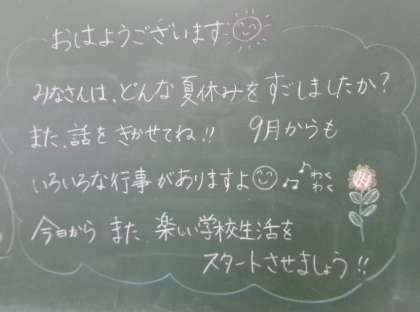 おはようございます
みなさんは、どんな夏休みをすごしましたか？
また、話をきかせてね!! 9月からも
いろいろな行事がありますよ わくわく
今日から また、楽しい学校生活を
スタートさせましょう!!